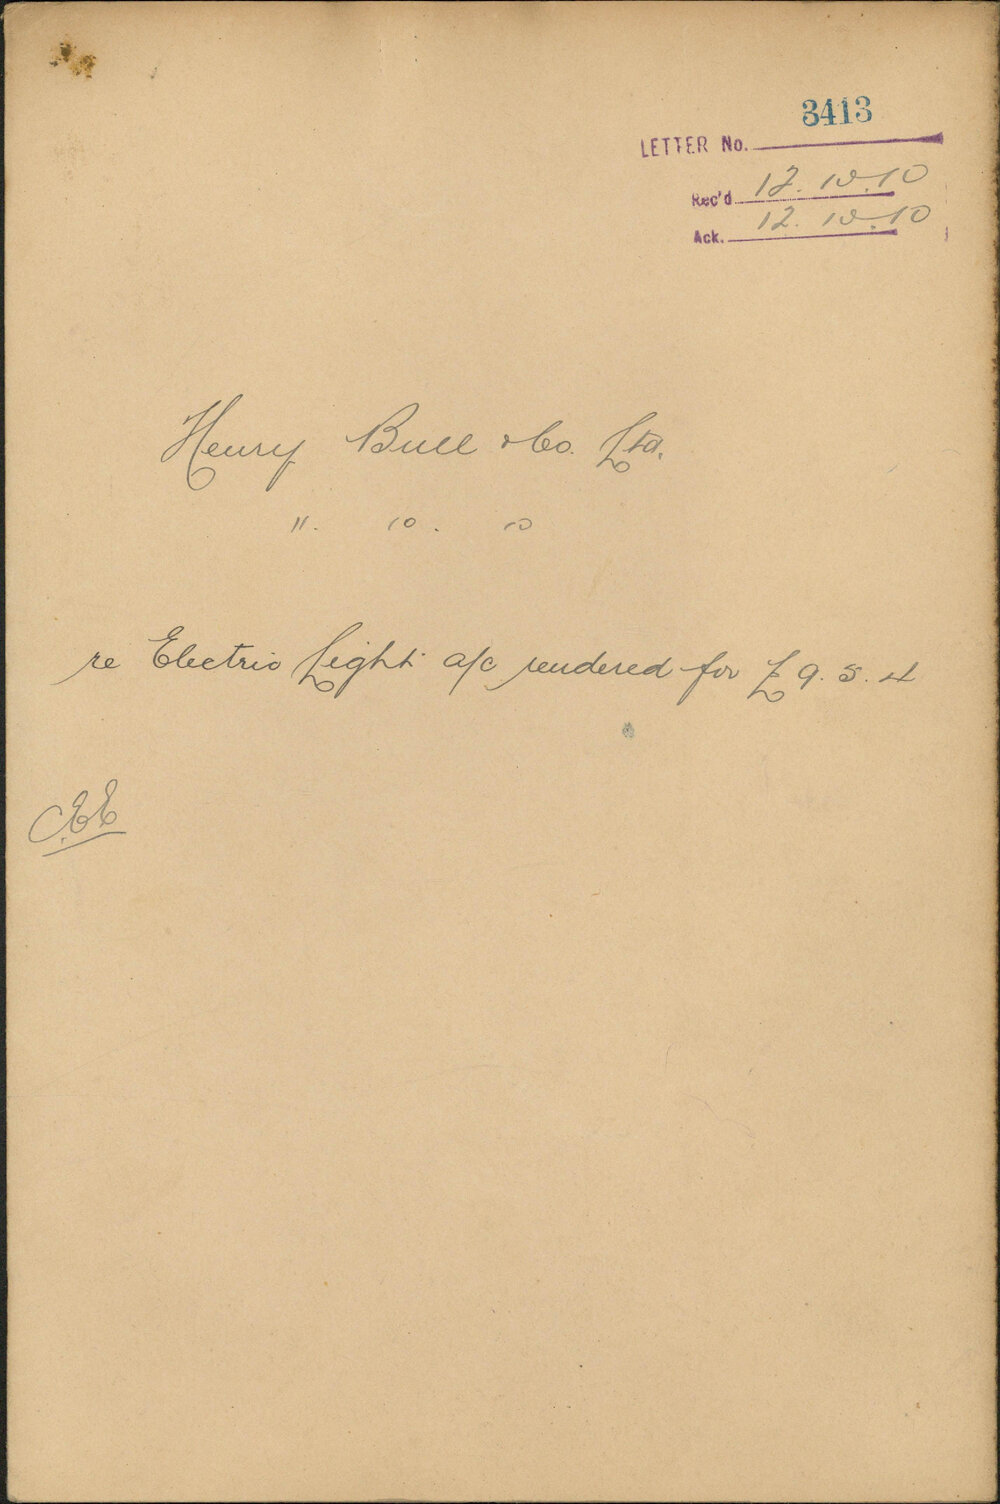 3413
LETTER No.
Rec'd 12.10.10
Ack. 12.10.10
Henry Bull & Co. Ltd.
11. 10. 10
re Electric Light a/c rendered for £9.5.4